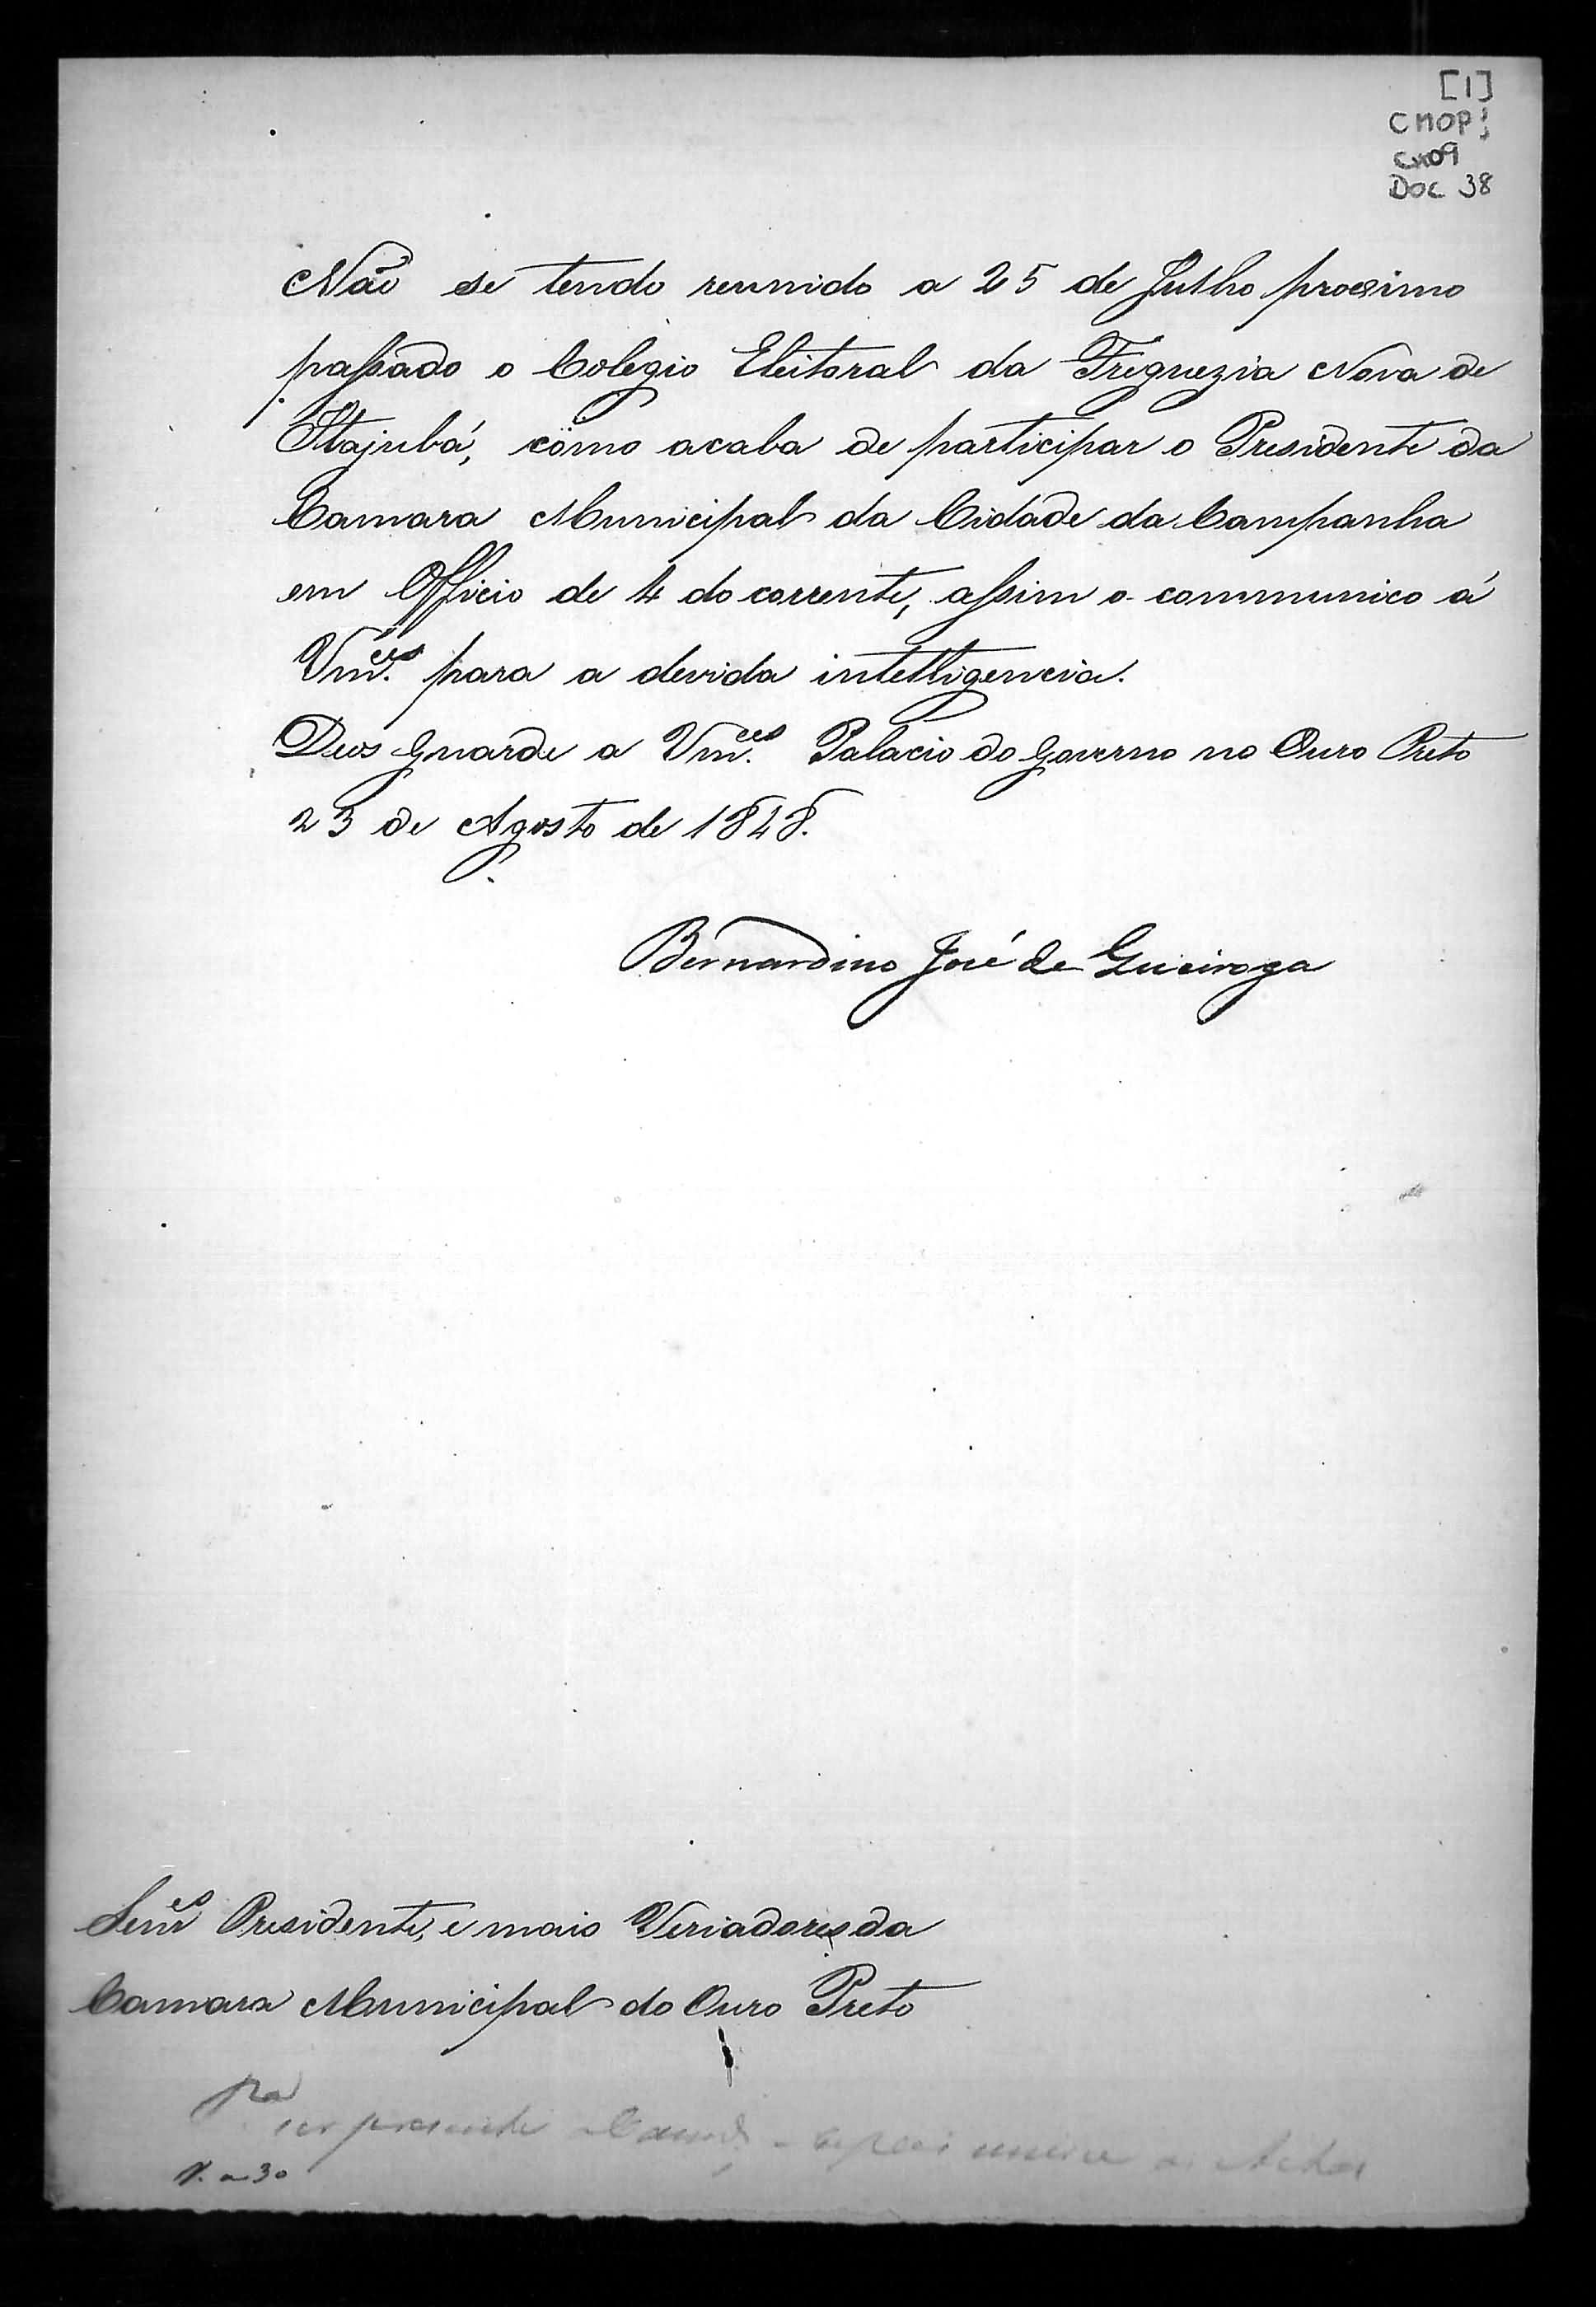 [1]
CMOP;
Cx09
DOC 38
Não se tendo reunido a 25 de Julho proximo
passado o Colegio Eleitoral da Freguezia Nova de
Itajubá, como acaba de participar o Presidente da
Camara Municipal da Cidade da Campanha
em Officio de 4 do corrente, assim o communico á
Vm.ces para a devida intelligencia.
Deos Guarde a Vm.ces Palacio do Governo no Ouro Preto
23 de Agosto de 1848.
Bernardino José de Queiroga
Senres Presidente, e mais Veriadores da
Camara Municipal do Ouro Preto
pa
ser presente a
a 30